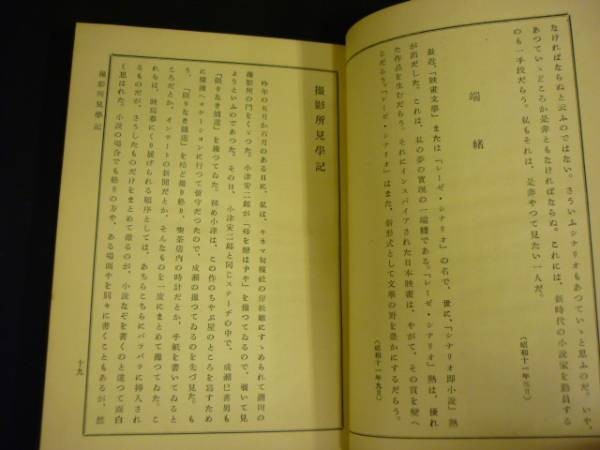 なければならぬと云ふのではない。さういふシナリオもあつていゝと思ふのだ。いや、
あつていゝどころか是非ともなければならぬ。これには、新時代の小説家を動員する
のも一手段だらう。私もそれは、是非やつて見たい一人だ。
(昭和十一年三月)
端緒
最近、「映畫文學」または「レーゼ・シナリオ」の名で、後に、「シナリオ即小説」熱
が出だした。これは、私の夢の實現の一端緒である。「レーゼ・シナリオ」熱は、優れ
た作品を生むだらう。それにインスパイアされた日本映畫は、やがて、その質を變へ
るだらう。「レーゼ・シナリオ」はまた、新形式として文學の野を豊かにするだらう。
(昭和十一年九月)
撮影所見學記
昨年の五月か六月のある日に、私は、キネマ旬報社の岸松雄にすゝめられて蒲田の
撮影所の門をくゞつた。小津安二郎が「母を戀はずや」を撮つてゐるので、覗いて見
ようといふのであつた。その日、小津安二郎と同じステーヂの中で、成瀬巳喜男も
「限りなき鋪道」を撮つてゐた。初め小津は、この作のちやぶ屋のところを寫すため
に横濱へロケーションに行つて留守だつたので、成瀬の撮つてゐるのを先づ見た。も
う、「限りなき鋪道」を殆ど撮り終り、喫茶店内の時計だとか、手紙を書いてゐると
ころだとか、インサートの新聞だとか、そんなものを一度にまとめて撮つてゐた。こ
れらは、映寫幕にくり展げられる順序としては、あちらこちらにバラバラに挿入され
るものだが、さうしたものだけをまとめて撮るのが、小説なぞを書くのと違つて面白
く思はれた。小説の場合でも終りの方や、ある場面やを別々に書くこともあるが、然
撮影所見學記
十九